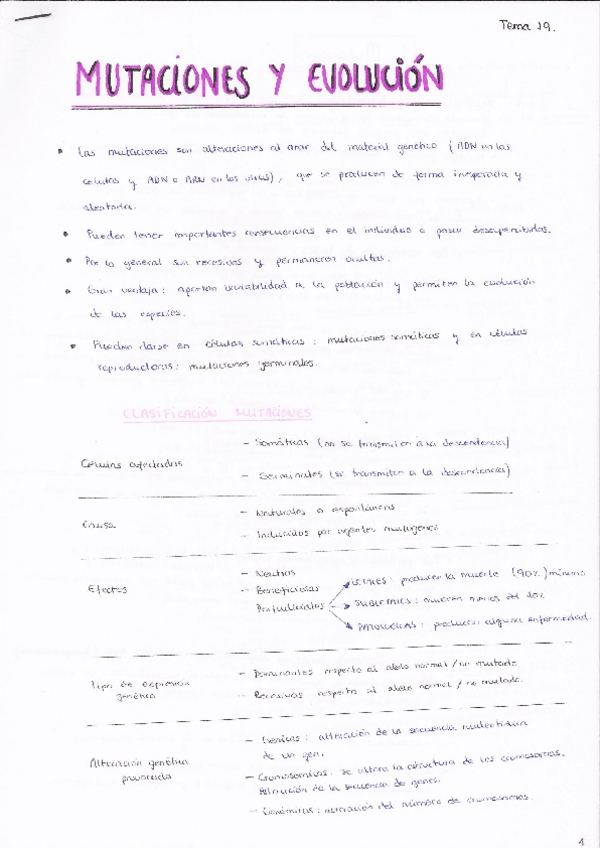 Tema 19.
MUTACIONES Y EVOLUCIÓN
• Las mutaciones son alteraciones al azar del material genético (ADN en las
células y ADN o ARN en los virus), que se producen de forma inesperada y
aleatoria.
• Pueden tener importantes consecuencias en el individuo o pasar desapercibidas.
• Por lo general son recesivas y permanecen ocultas.
• Gran ventaja: aportan variabilidad a la población y permiten la evolución
de las especies.
• Pueden darse en células somáticas: mutaciones somáticas y en células
reproductoras: mutaciones germinales.
CLASIFICACIÓN MUTACIONES
Células afectadas
- Somáticas (no se transmiten a la descendencia)
- Germinales (sí transmiten a la descendencia)
Causa
- Naturales o espontáneas
- Inducidas por agentes mutágenos
Efectos
- Neutras
- Beneficiosas
Perjudiciales
LETALES: producen la muerte (90%) mínimo
SUBLETALES: mueren menos del 10%
PATOLÓGICAS: producen alguna enfermedad.
Tipo de expresión
genética
- Dominantes respecto al alelo normal / no mutado
- Recesivas respecto al alelo normal / no mutado.
Alteración genética
provocada
- Génicas: alteración de la secuencia nucleótidos
de un gen.
- Cromosómicas: se altera la estructura de los cromosomas.
Alteración de la secuencia de genes.
- Genómicas: alteración del número de cromosomas.
1